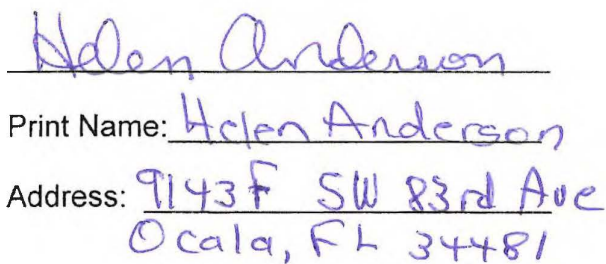 Helen Anderson
Print Name: Helen Anderson
Address: 9143F SW 83rd Ave
Ocala, FL 34481